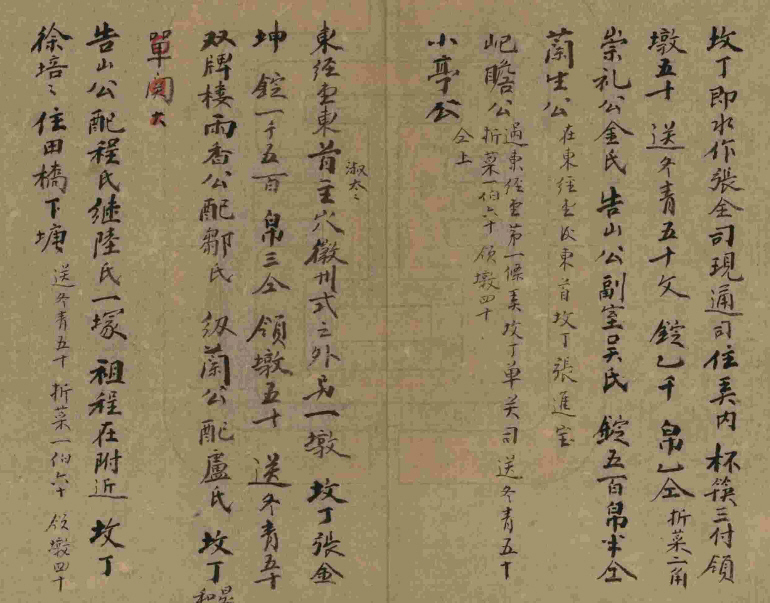 坟丁即水作張全司現通司住美内 杯筷三付領
墩五十 送冬青五十文 錠乙千 帛乙仝 折菜六角
崇礼公金氏 告山公副室吴氏 錠五百帛半仝
蘭生公 在東經堂後東首坟丁張進宝
屺瞻公 過東經堂第一條美坟丁單关司 送冬青五十
折菜一伯六十 領墩四十
小亭公 仝上
淑太〻
東經堂東首主穴徽州式之外另一墩 坟丁張金
坤 錠一千五百 帛三仝 領墩五十 送冬青五十
双牌樓雨香公配鄒氏 纫蘭公配盧氏 坟丁
單 大
告山公配程氏继陸氏一塚 祖程在附近 坟丁
徐培〻住田橋下塘 送冬青五十 折菜一伯六十 領墩四十